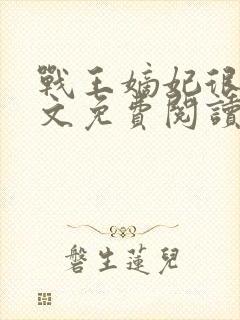 戰王嫡妃很
文免費閱讀
磐生蓮兒